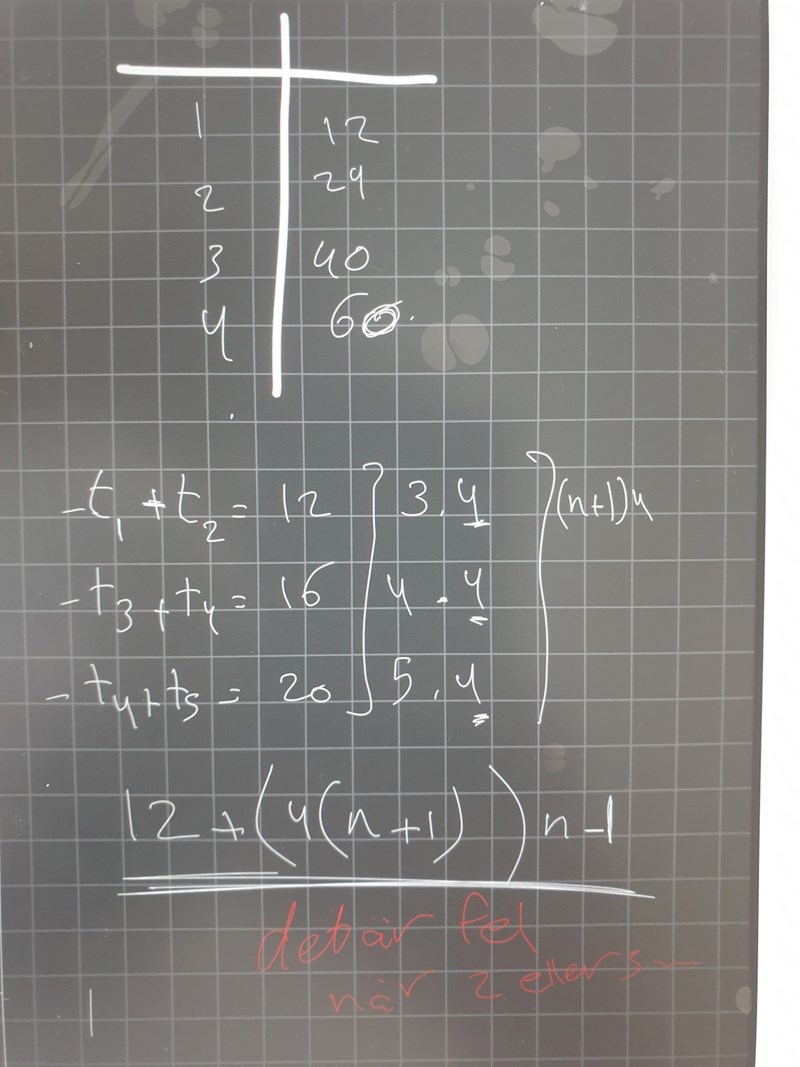 1 12
2 24
3 40
4 60.
-t₁ + t₂ = 12 3.4 (n+1)4
-t₃ + t₄ = 16 4.4
-t₄ + t₅ = 20 5.4
12 + (4(n+1)) n-1
det är fel
när 2 eller 3
1